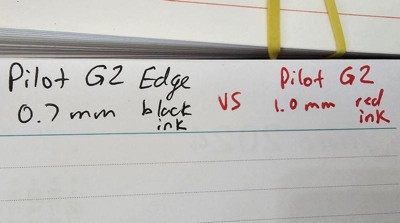 Pilot G2 Edge
0.7 mm black ink
vs
Pilot G2
1.0 mm red ink